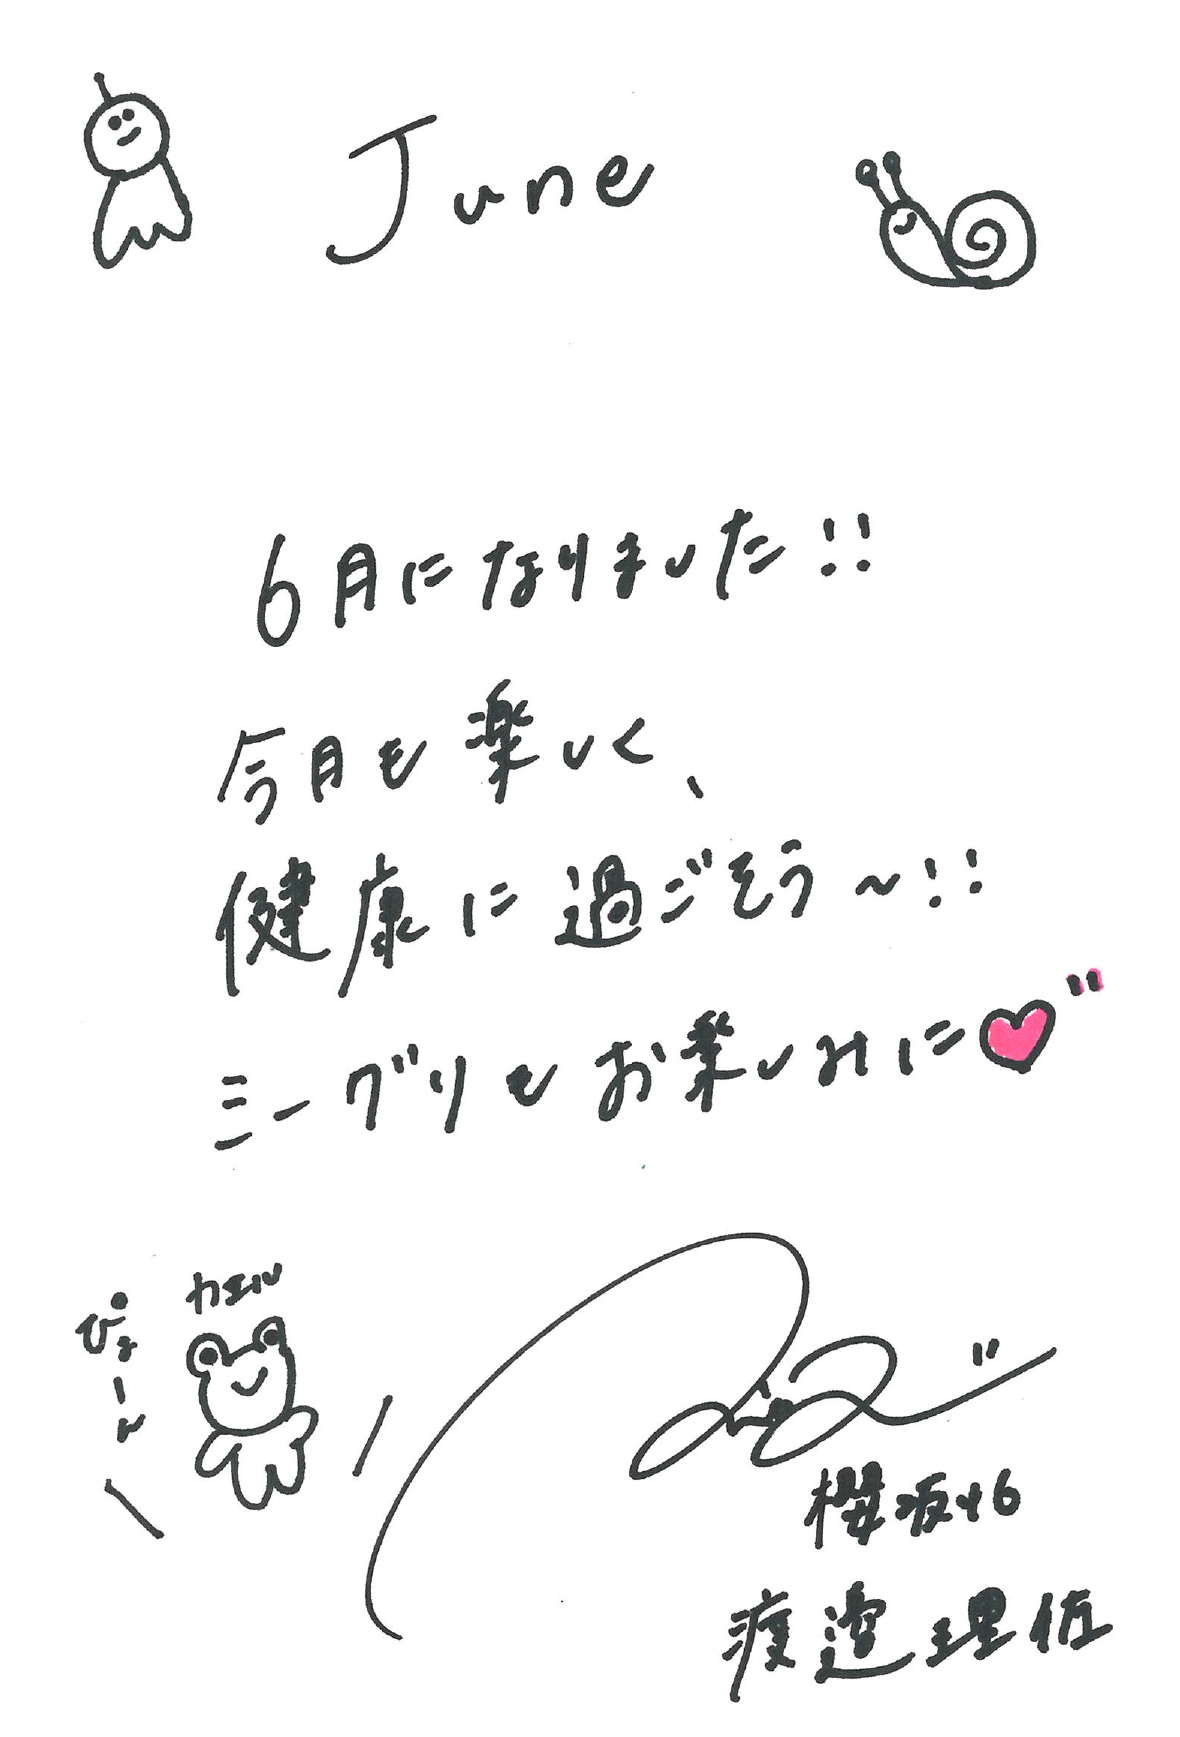 June
6月になりました!!
今月も楽しく、
健康に過ごそう〜!!
ミーグリもお楽しみに♥
カエル
ぴょーん
櫻坂46
渡邉理佐